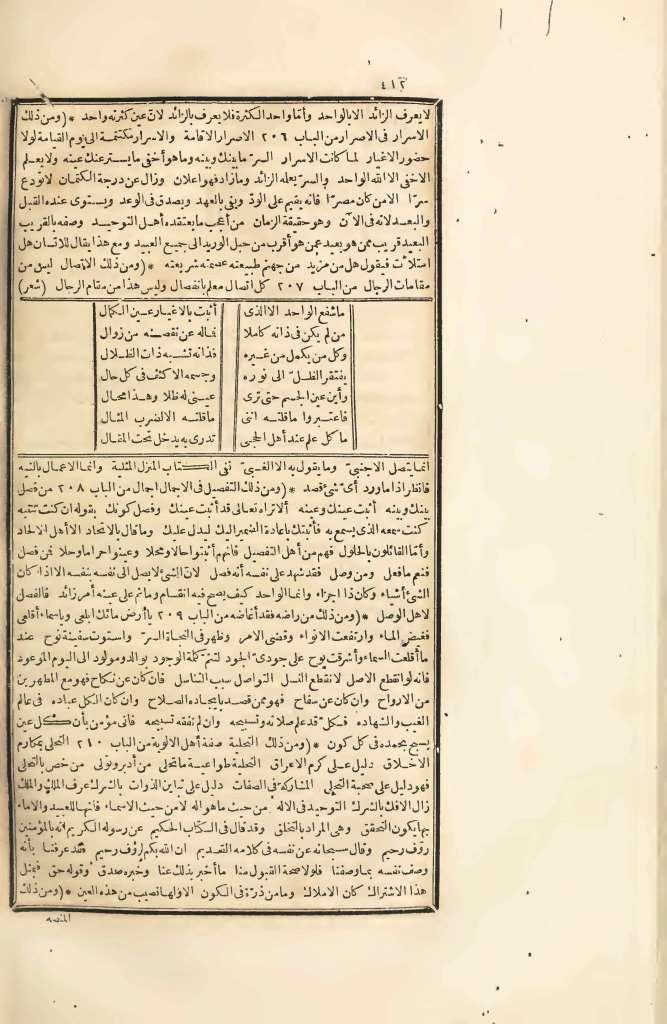 ٤١٢
لا يعرف الزائد الا بالواحد وأما واحد الكثرة فلا يعرف بالزائد لان عين كثرته واحد * (ومن ذلك
الاسرار فى الاصرار من الباب ٢٠٦ الاصرار الاقامة والاسرار مكتتمة الى يوم القيامة لولا
حضور الاغيار لما كانت الاسرار السرّ ما بينك وبينه وما هو أخفى ما يستر عنك عينه ولا يعلم
الاخفى الا الله الواحد والسرّ يعلمه الزائد وما زاد فهو اعلان وزال عن درجة الكتمان لا تودع
سرّا الا من كان مصرّا فانه يقيم على الودّ ويفى بالعهد ويصدق فى الوعد ويستوى عنده القبل
والبعد لانه فى الآن وهو حقيقة الزمان من أعجب ما يعتقده أهل التوحيد وصفه بالقريب
البعيد قريب ممن هو بعيد عمن هو أقرب من حبل الوريد الى جميع العبيد ومع هذا يقال للانسان هل
امتلأت فيقول هل من مزيد من جهنم طبيعته عصمته شريعته * (ومن ذلك الاتصال ليس من
مقامات الرجال من الباب ٢٠٧ كل اتصال معلم بانفصال وليس هذا من مقام الرجال (شعر)
ما شفع الواحد الا الذى أثبت بالاغيار عين الكمال
من لم يكن فى ذاته كاملا فماله عن نقصه من زوال
وكل من يكمل من غيره فذاته تشبه ذات الظلال
يفتقر الظل الى نوره وجسمه الاكثف فى كل حال
وأين عين الجسم حتى ترى عينى له ظلا وهذا محال
فاعتبروا ما قلته اننى ما قلته الا لضرب المثال
ما كل علم عند أهل الحجى تدرى به يدخل تحت المقال
انما يتصل الاجنبىّ وما يقول به الا الغبىّ ففى الكتاب المنزل المثلية وانما الاعمال بالنية
فانظر اذا ما ورد أىّ شئ قصد * (ومن ذلك التفصيل فى الاجمال اجمال من الباب ٢٠٨ من فصل
بينك وبينه أثبت عينك وعينه ألا تراه تعالى قد أثبت عينك وفصل كونك بقوله ان كنت تنتبه
كنت سمعه الذى يسمع به فأثبتك باعادة الضمير اليك ليدل عليك وما قال بالاتحاد الا أهل الالحاد
وأما القائلون بالحلول فهم من أهل التفصيل فانهم أثبتوا حالا ومحلا وعينوا حراما وحلا فمن فصل
فنعم ما فعل ومن وصل فقد شهد على نفسه أنه فصل لان الشئ لا يصل الى نفسه بنفسه الا اذا كان
الشئ أشياء وكان ذا اجزاء وانما الواحد كيف يصح فيه انقسام وما ثم على عينه أمر زائد فالفصل
لاهل الوصل * (ومن ذلك من راضه فقد أغاضه من الباب ٢٠٩ يا أرض ماءك ابلعى ويا سماء أقلعى
فغيض الماء وارتفعت الانواء وقضى الامر وظهر فى النجاة السرّ واستوت سفينة نوح عند
ما أقلعت السماء وأشرقت يوح على جودىّ الجود لتتم كلمة الوجود بوالد ومولود الى اليوم الموعود
فانه لو انقطع الاصل لانقطع النسل التواصل سبب التناسل فان كان عن نكاح فهو مع المطهرين
من الارواح وان كان عن سفاح فهو ممن قصد بايجاده الصلاح وان كان الكل عباده فى عالم
الغيب والشهاده فكل قد علم صلاته وتسبيحه وان لم نفقه تسبيحه فانى مؤمن بأن كل عين
يسبح بحمده فى كل كون * (ومن ذلك التحلية صفة أهل الالوية من الباب ٢١٠ التحلى بمكارم
الاخلاق دليل على كرم الاعراق التحلية طواعية ما تحلى من أدبر وتولى من خص بالتحلى
فهو دليل على صحة التحلى المشاركة فى الصفات دليل على تباين الذوات بالشرك عرف الملك والملك
زال الافك بالشرك التوحيد فى الاله من حيث ما هو اله لا من حيث الاسماء فانها للعبيد والاماء
بها يكون التحقق وهى المراد بالتخلق وقد قال فى الكتاب الحكيم عن رسوله الكريم انه بالمؤمنين
رؤف رحيم وقال سبحانه عن نفسه فى كلامه القديم ان الله بكم لرؤف رحيم فقد عرفنا بأنه
وصف نفسه بما وصفنا فلولا صحة القبول منا ما أخبر بذلك عنا وخبره صدق وقوله حق فبمثل
هذا الاشتراك كان الاملاك وما من ذرّة فى الكون الا ولها نصيب من هذه العين * (ومن ذلك
المنصه